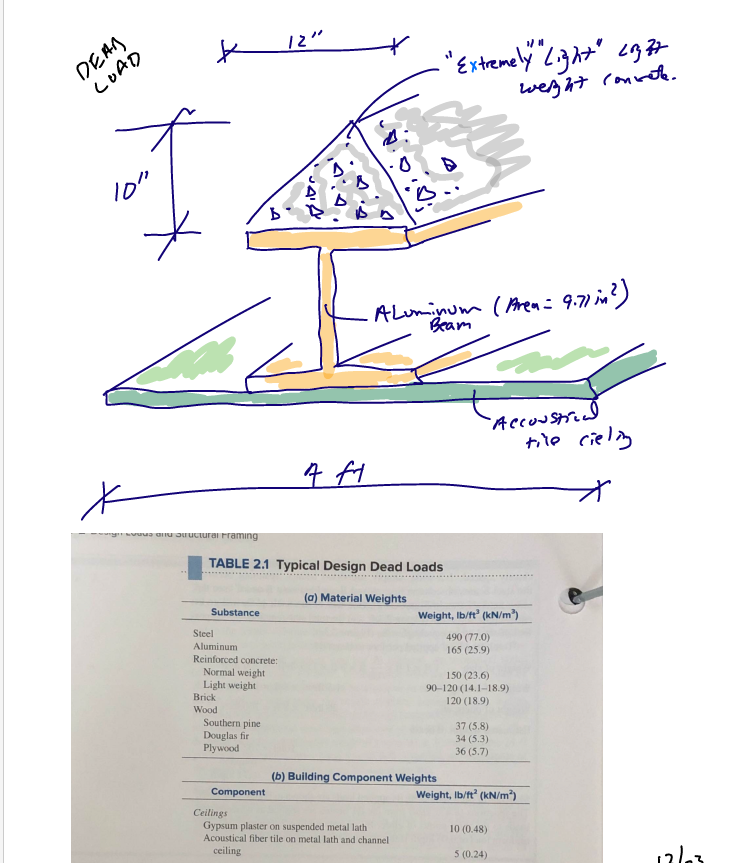 DEAD
LOAD
12"
"Extremely" "Light" Light
weight concrete.
10"
ALuminum (Area = 9.71 in²)
Beam
Accoustical
tile cieling
4 ft
TABLE 2.1 Typical Design Dead Loads
(a) Material Weights
Substance Weight, lb/ft³ (kN/m³)
Steel 490 (77.0)
Aluminum 165 (25.9)
Reinforced concrete:
Normal weight 150 (23.6)
Light weight 90–120 (14.1–18.9)
Brick 120 (18.9)
Wood
Southern pine 37 (5.8)
Douglas fir 34 (5.3)
Plywood 36 (5.7)
(b) Building Component Weights
Component Weight, lb/ft² (kN/m²)
Ceilings
Gypsum plaster on suspended metal lath 10 (0.48)
Acoustical fiber tile on metal lath and channel
ceiling 5 (0.24)